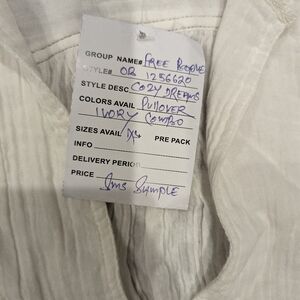 GROUP NAME# FREE PEOPLE
STYLE# OB 1256620
STYLE DESC COZY DREAMS
COLORS AVAIL PULLOVER
IVORY COMBO
SIZES AVAIL XS PRE PACK
INFO
DELIVERY PERIOD
PRICE
SMS SAMPLE